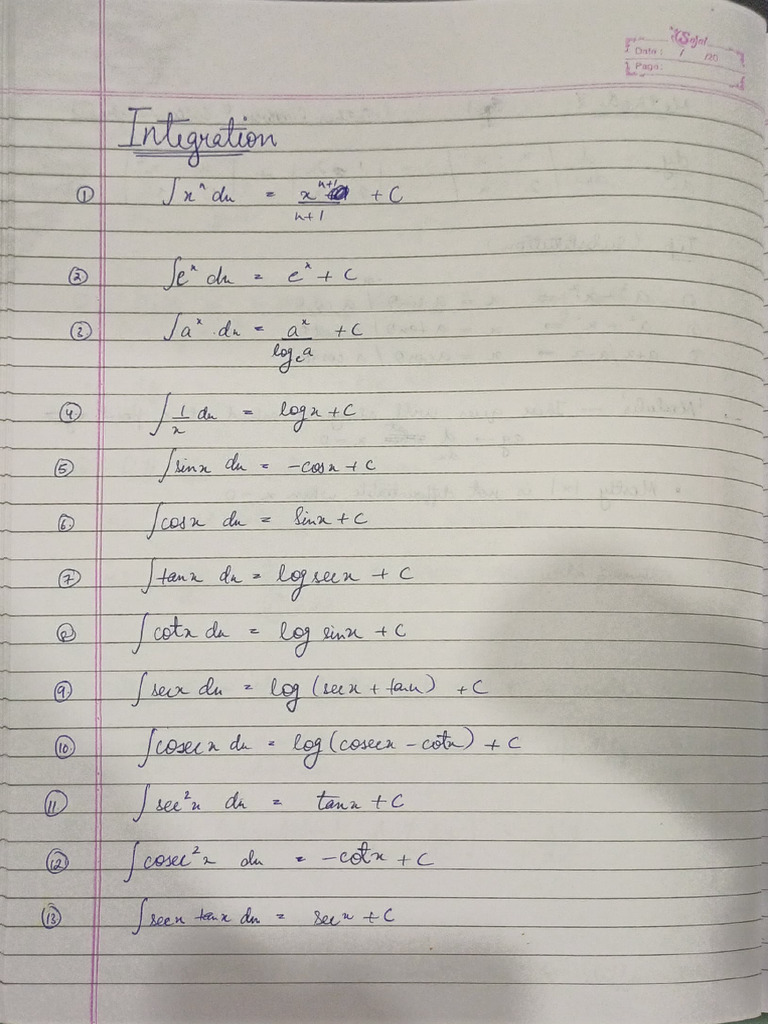 Sajal
Date: / /20
Page:
Integration
① ∫xⁿ dx = xⁿ⁺¹/n+1 + C
② ∫eˣ dx = eˣ + C
③ ∫aˣ . dx = aˣ/logₑa + C
④ ∫1/x dx = logx + C
⑤ ∫sinx dx = -cosx + C
⑥ ∫cosx dx = sinx + C
⑦ ∫tanx dx = log secx + C
⑧ ∫cotx dx = log sinx + C
⑨ ∫secx dx = log (secx + tanx) + C
⑩ ∫cosecx dx = log (cosecx - cotx) + C
⑪ ∫sec²x dx = tanx + C
⑫ ∫cosec²x dx = -cotx + C
⑬ ∫secx tanx dx = secx + C